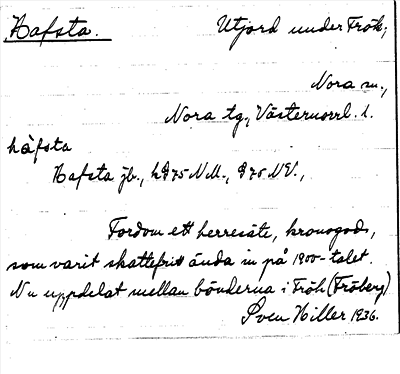 Hafsta. Utjord under Frök,
Nora sn.,
Nora tg., Västernorrl. l.
håfsta
Hafsta jb.,
Fordom ett herresäte, kronogods,
som varit skattefritt ända in på 1900-talet.
Nu uppdelat mellan bönderna i Frök (Fröberg)
Sven Hiller 1936.